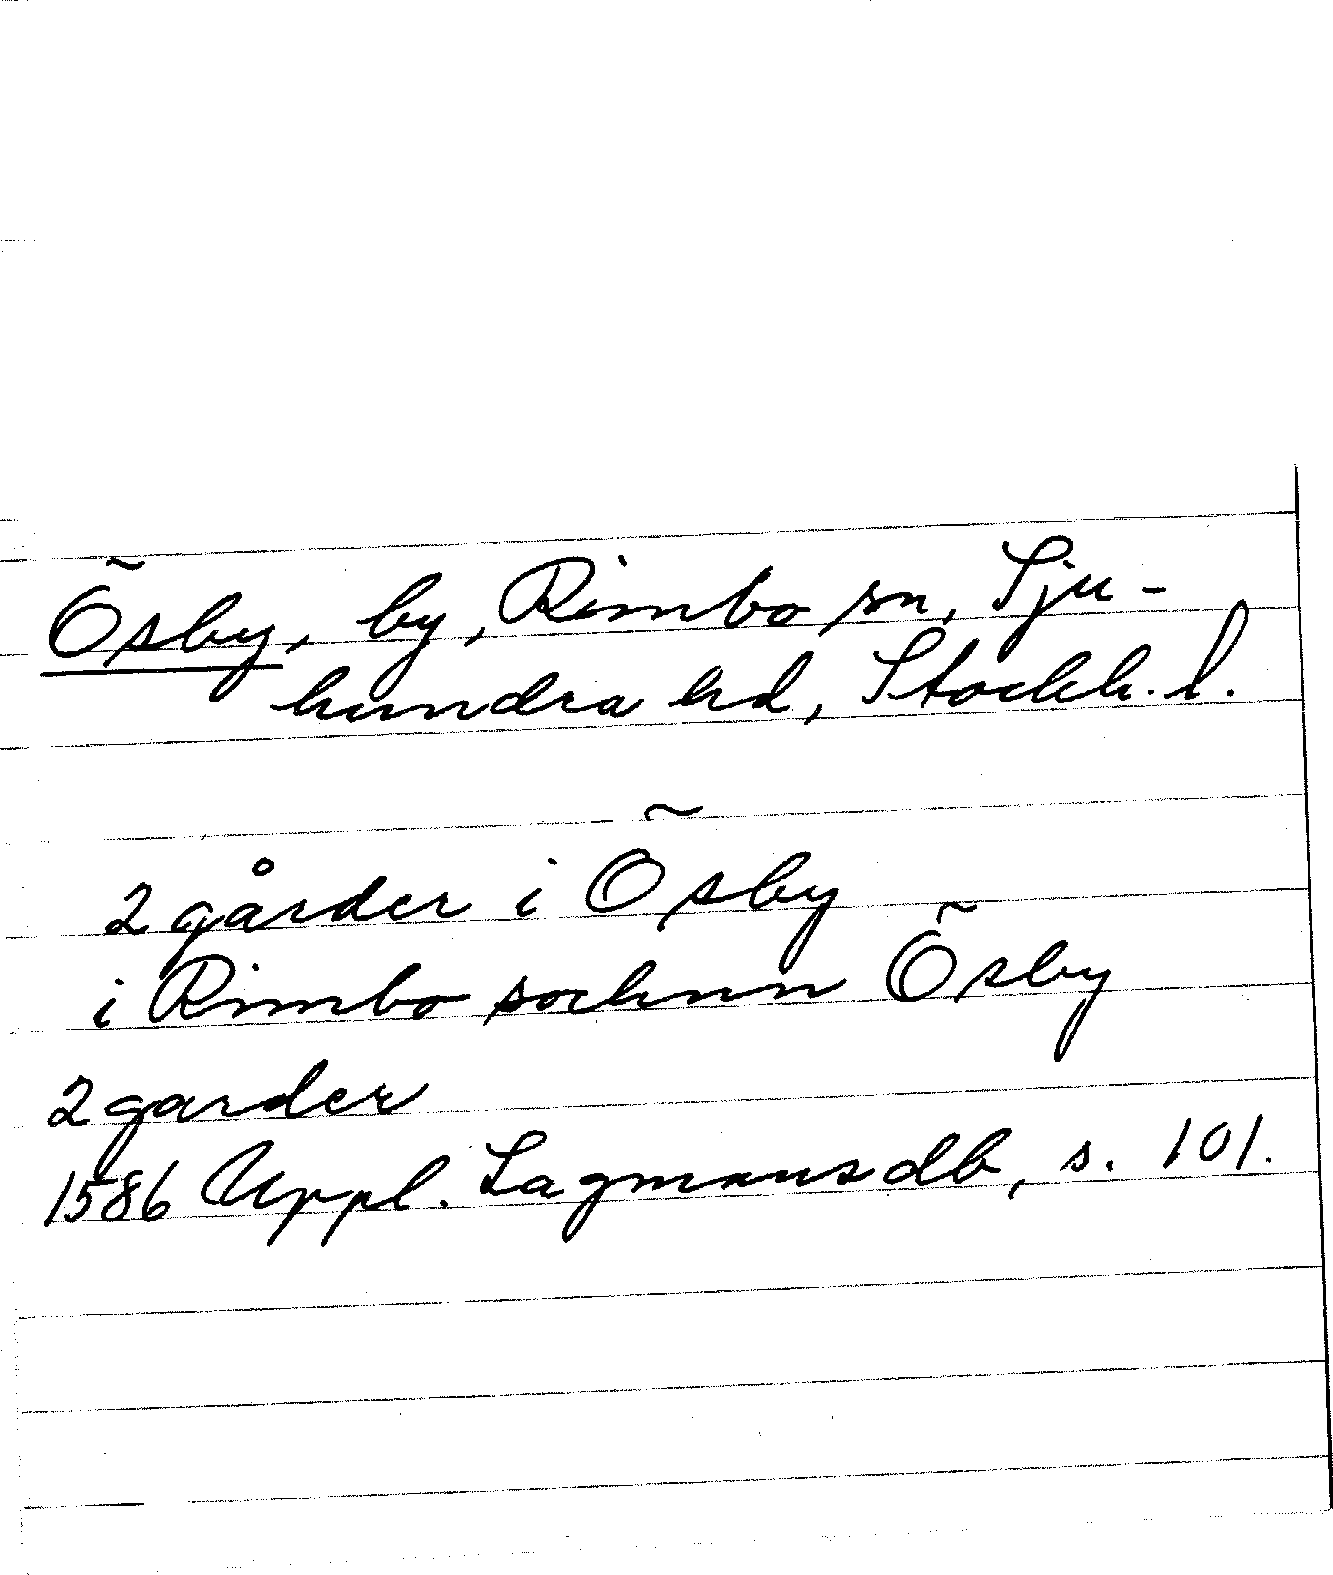 Õsby, by, Rimbo sn, Sju-
hundra hd, Stockh. l.
2 gårder i Õsby
i Rimbo sochnn Õsby
2 garder
1586 Uppl. Lagmansdb, s. 101.